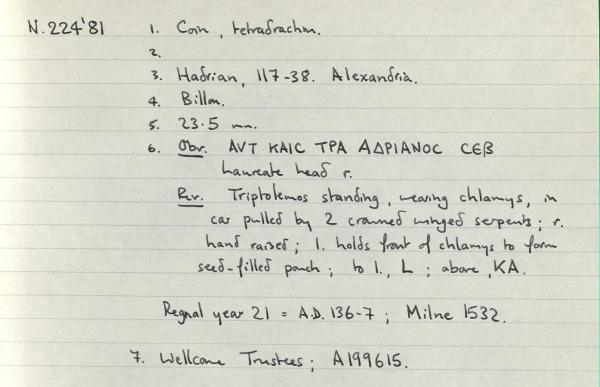 N.224'81 1. Coin, tetradrachm.
2.
3. Hadrian, 117-38. Alexandria.
4. Billon.
5. 23.5 mm.
6. Obv. ΑVΤ ΚΑΙC ΤΡΑ ΑΔΡΙΑΝΟC CЄΒ
Laureate head r.
Rv. Triptolemos standing, wearing chlamys, in
car pulled by 2 crowned winged serpents; r.
hand raised; l. holds front of chlamys to form
seed-filled pouch; to l., L; above, KA.
Regnal year 21 = A.D. 136-7; Milne 1532.
7. Wellcome Trustees; A199615.